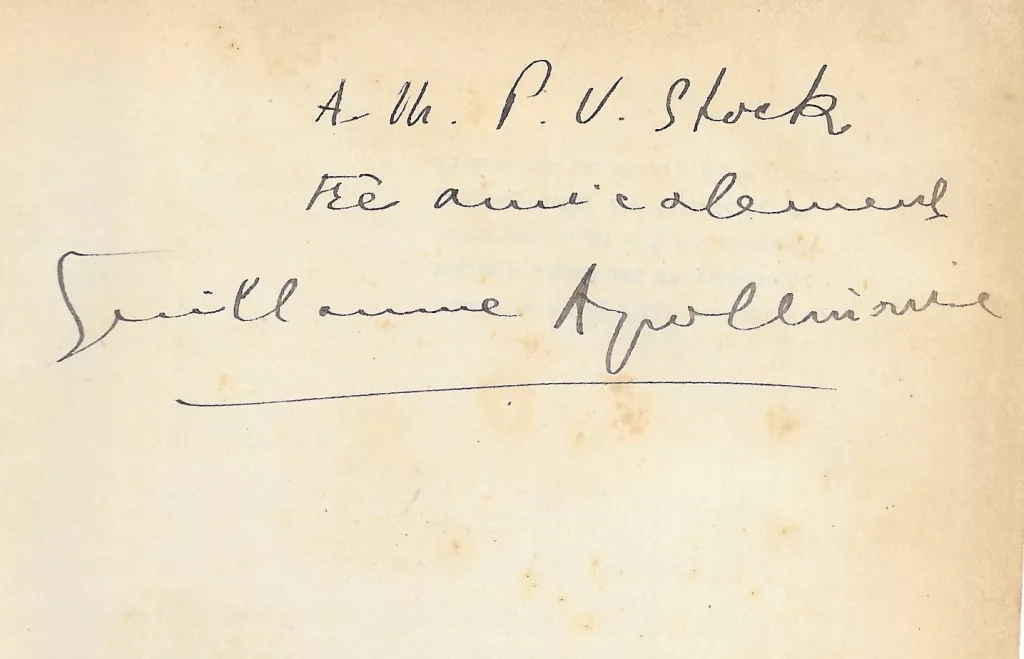 A M. P. V. Stock
Trè amicalement
Guillaume Apollinaire